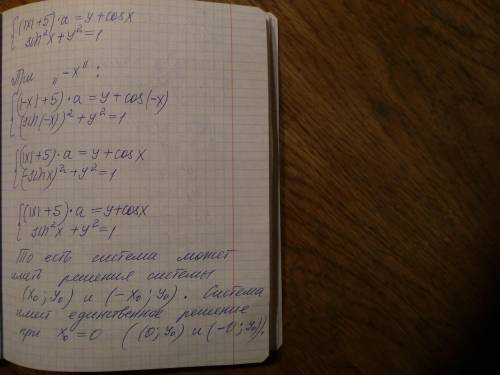 {(|x|+5)·a = y + cosx
sin²x + y² = 1
При „-x":
{(|-x|+5)·a = y + cos(-x)
(sin(-x))² + y² = 1
{(|x|+5)·a = y + cosx
(-sinx)² + y² = 1
{(|x|+5)·a = y + cosx
sin²x + y² = 1
То есть система может
иметь решения системы
(x₀; y₀) и (-x₀; y₀). Система
имеет единственное решение
при x₀ = 0 ((0; y₀) и (-0; y₀)),